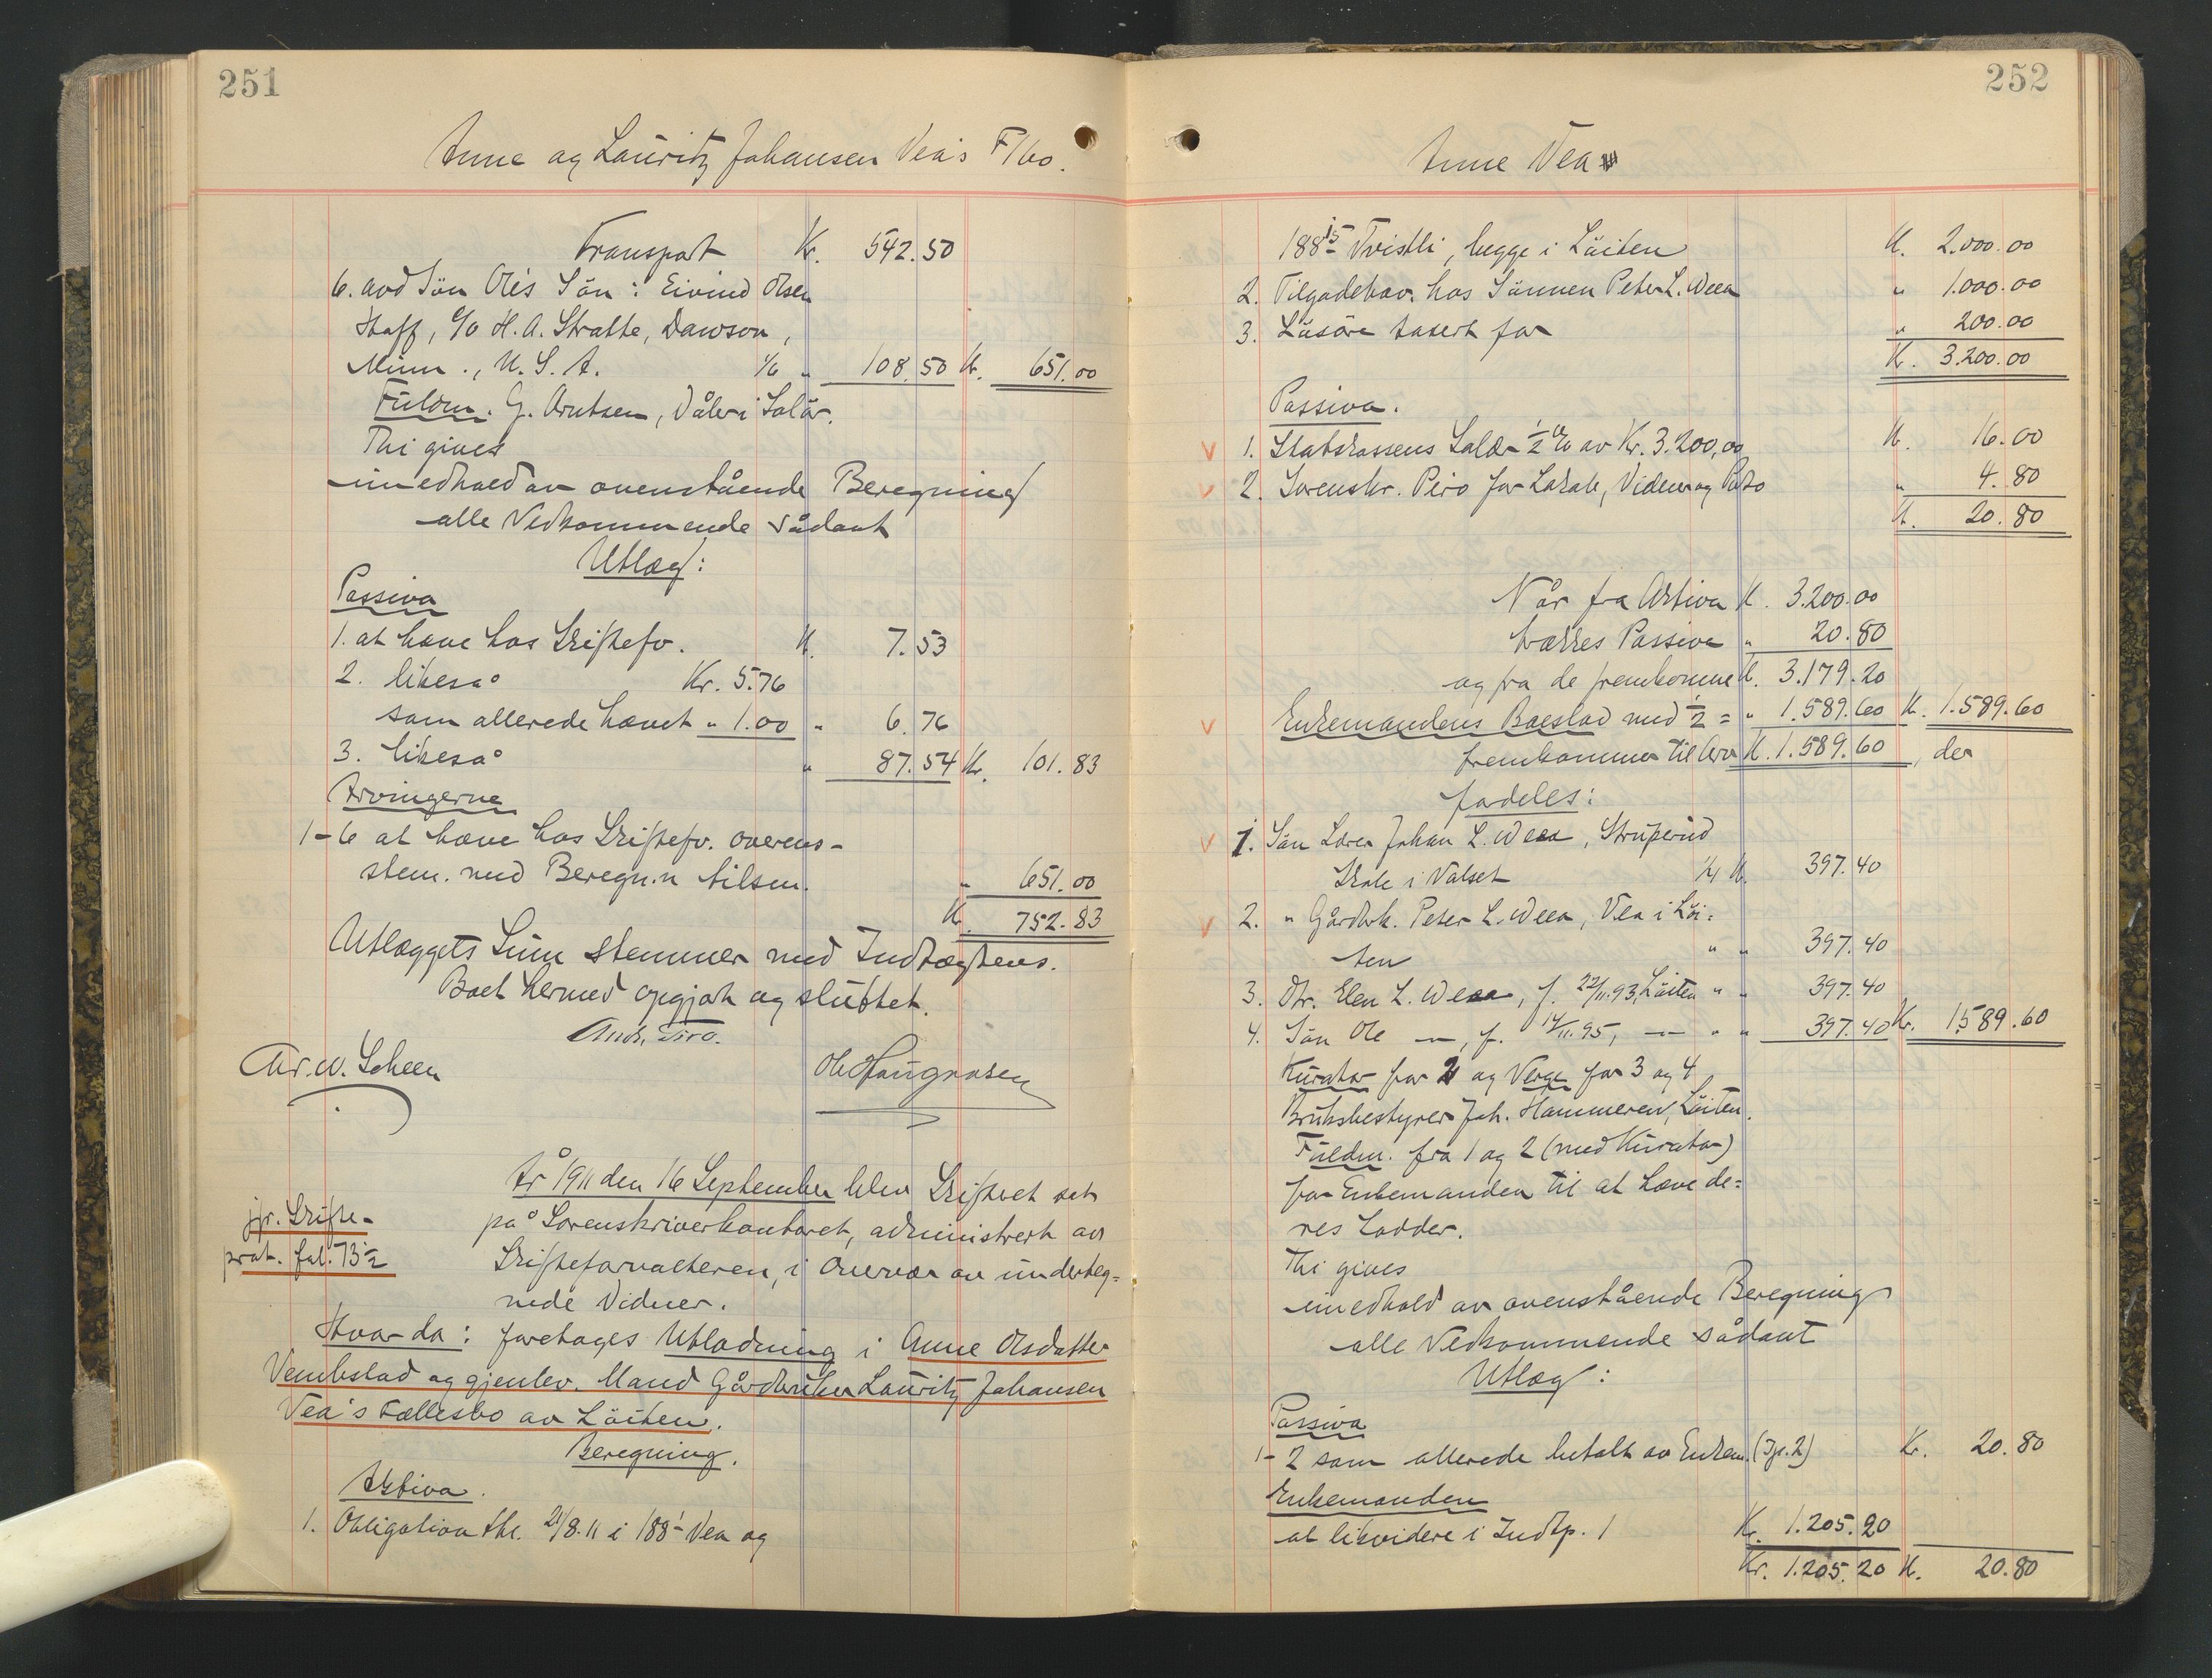 251
Anne og Lauritz Johansen Vea's F/bo.
Transport Kr. 542.50
6. avd Sön Ole's Sön: Eivind Olsen
Hoff, c/o H. A. Stratte, Dawson,
Minn., U. S. A. 1/6 " 108.50 Kr. 651.00
Fuldm. G. Arntsen, Våler i Solör.
Thi gives
imedhold av ovenstående Beregning
alle Vedkommende sådant
Utlæg:
Passiva
1. at hæve hos Skiftefv. Kr. 7.53
2. likeså Kr. 5.76
som allerede hævet " 1.00 " 6.76
3. likeså " 87.54 Kr. 101.83
Arvingerne
1-6 at hæve hos Skiftefv. overens-
stem. med Beregn.n tilsm. " 651.00
Kr. 752.83
Utlæggets Sum stemmer med Indtægtens.
Boet hermed opgjort og sluttet.
Andr. Piro.
Chr. W. Scheen
Ole Haugnæsen
År 1911 den 16 September blev Skifteret sat
på Sorenskriverkontoret, administrert av
Skifteforvalteren, i Overvær av underteg-
nede Vidner.
jfr. Skifte-
prot. fol. 73 1/2
Hvor da: foretages Utlodning i Anne Olsdatter
Vembstad og gjenlev. Mand Gårdbruker Lauritz Johansen
Vea's Fællesbo av Löiten.
Beregning.
Aktiva.
1. Obligation thl. 21/8.11 i 188 1 Vea og
252
Anne Vea
188 15 Tvistli, begge i Löiten Kr. 2.000.00
2. Tilgodehav. hos Sönnen Peter L. Weea " 1.000.00
3. Lösöre taxert for " 200.00
Kr. 3.200.00
Passiva.
1. Statskassens Salær 1/2 % av Kr. 3.200,00 Kr. 16.00
2. Sorenskr. Piro for Lokale, Vidner og Porto " 4.80
Kr. 20.80
Når fra Aktiva Kr. 3.200.00
trækkes Passiva " 20.80
og fra de fremkomne Kr. 3.179.20
Enkemandens Boeslod med 1/2 = " 1.589.60 Kr. 1.589.60
fremkommer til Arv Kr. 1.589.60, der
fordeles:
1. Sön Lærer Johan L. Weea, Struperud
Skole i Valset 1/4 Kr. 397.40
2. " Gårdbrk. Peter L. Weea, Vea i Löi-
ten " " 397.40
3. Dtr. Elen L. Weea, f. 22/11.93, Löiten " " 397.40
4. Sön Ole —, f. 14/11.95, — " " 397.40 Kr. 1589.60
Kurator for 2 og Verge for 3 og 4
Bruksbestyrer Joh. Hammeren, Löiten.
Fuldm. fra 1 og 2 (med Kurator)
for Enkemanden til at hæve de-
res Lodder.
Thi gives
imedhold av ovenstående Beregning
alle Vedkommende sådant
Utlæg:
Passiva
1-2 som allerede betalt av Enkem. (Jp. 2) Kr. 20.80
Enkemanden
at likvidere i Indtp. 1 Kr. 1.205.20
Kr. 1.205.20 Kr. 20.80